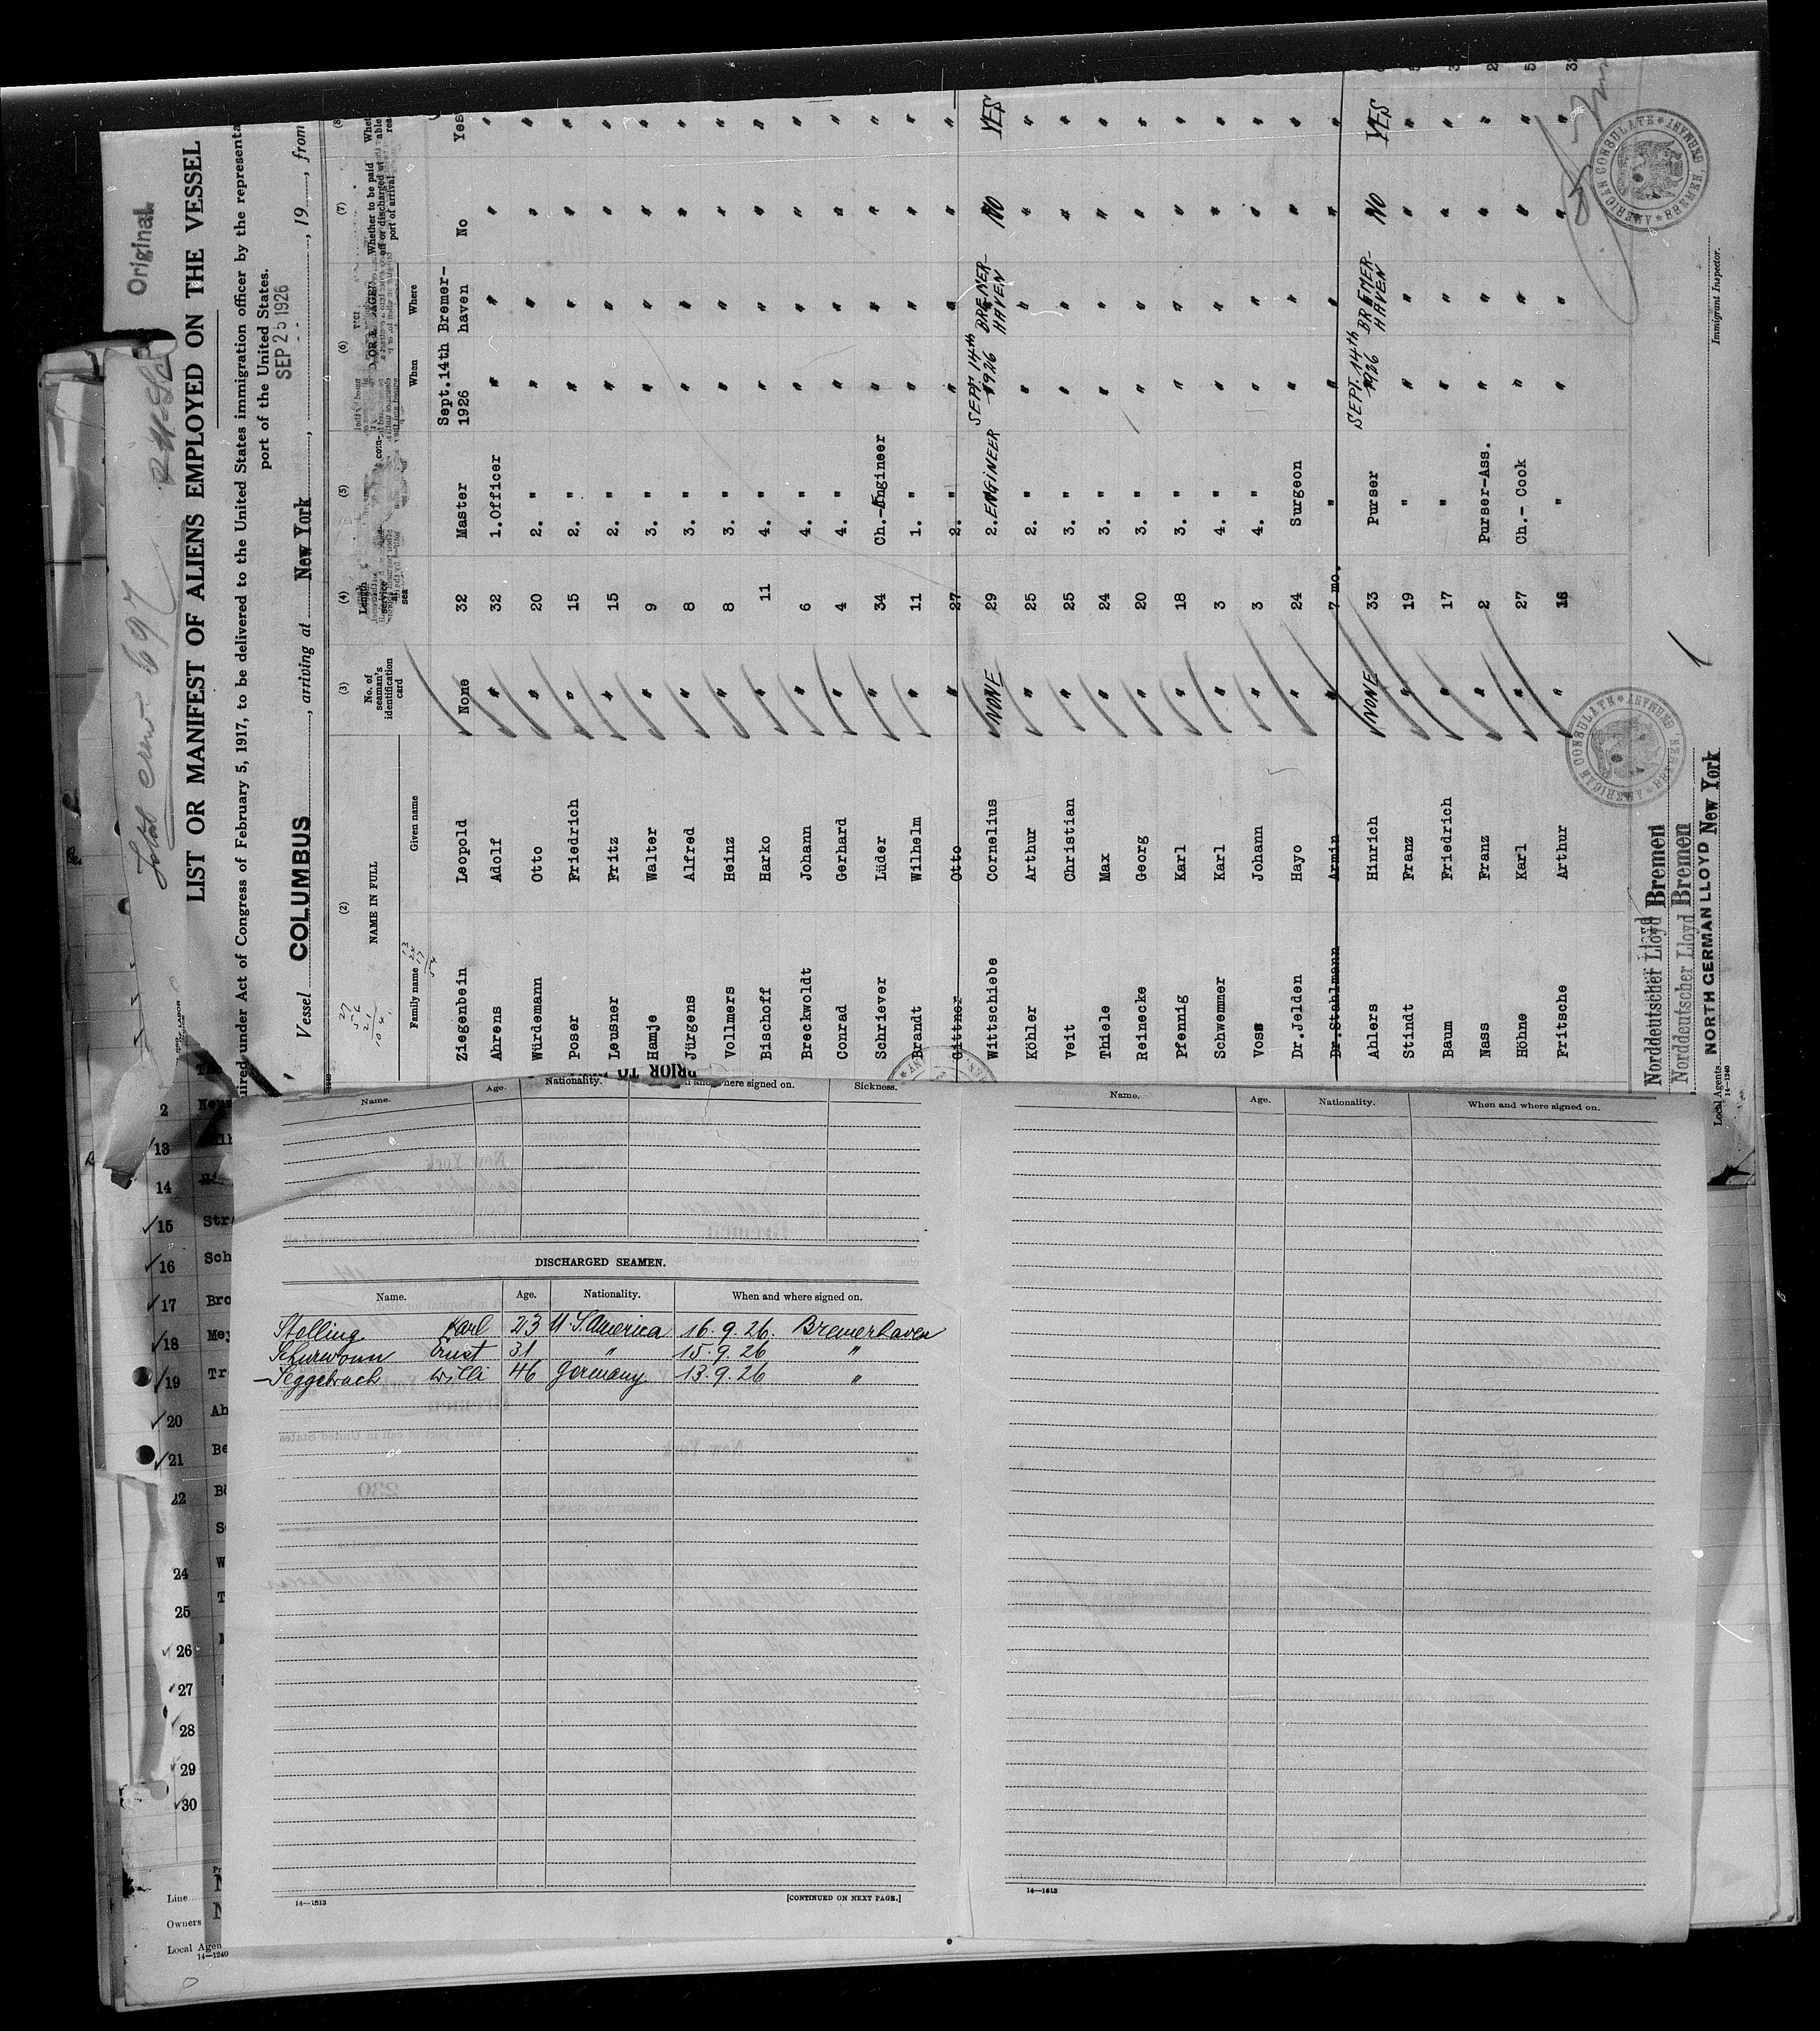 Original
Total crew 697
LIST OR MANIFEST OF ALIENS EMPLOYED ON THE VESSEL
uired under Act of Congress of February 5, 1917, to be delivered to the United States immigration officer by the representa
port of the United States.
SEP 25 1926
Vessel COLUMBUS, arriving at New York, 19, from
(2) (3) (4) (5) (6) (7) (8)
NAME IN FULL
Family name Given name No. of seaman's identification card Length service at sea When Where Whether to be paid off or discharged at port of arrival
Ziegenbein Leopold None 32 Master Sept.14th 1926 Bremerhaven No Yes
Ahrens Adolf " 32 1.Officer " " " "
Würdemann Otto " 20 2. " " " " "
Poser Friedrich " 15 2. " " " " "
Leusner Fritz " 15 2. " " " " "
Hamje Walter " 9 3. " " " " "
Jürgens Alfred " 8 3. " " " " "
Vollmers Heinz " 8 3. " " " " "
Bischoff Harko " 11 4. " " " " "
Breckwoldt Johann " 6 4. " " " " "
Conrad Gerhard " 4 4. " " " " "
Schriever Lüder " 34 Ch.-Engineer " " " "
Brandt Wilhelm " 11 1. " " " " "
Gittner Otto " 27 2. " " " " "
Wittschiebe Cornelius NONE 29 2. ENGINEER SEPT. 14th 1926 BREMERHAVEN NO YES
Köhler Arthur " 25 2. " " " " "
Veit Christian " 25 3. " " " " "
Thiele Max " 24 3. " " " " "
Reinecke Georg " 20 3. " " " " "
Pfennig Karl " 18 3. " " " " "
Schwemmer Karl " 3 4. " " " " "
Voss Johann " 3 4. " " " " "
Dr.Jelden Hayo " 24 Surgeon " " " "
Dr.Stahlmann Armin " 7 mo. " " " " "
Ahlers Hinrich NONE 33 Purser SEPT. 14th 1926 BREMERHAVEN NO YES
Stindt Franz " 19 " " " " "
Baum Friedrich " 17 " " " " "
Nass Franz " 2 Purser-Ass. " " " "
Höhne Karl " 27 Ch.- Cook " " " "
Fritsche Arthur " 18 " " " " "
Norddeutscher Lloyd Bremen
Norddeutscher Lloyd Bremen
Local Agents NORTH GERMAN LLOYD New York
14—1240
Immigrant Inspector.
AMERICAN CONSULATE BREMEN, GERMANY
AMERICAN CONSULATE BREMEN, GERMANY
PRIOR TO
Name. Age. Nationality. When and where signed on. Sickness.
DISCHARGED SEAMEN.
Name. Age. Nationality. When and where signed on.
Stelling Karl 23 U.S. America 16.9.26. Bremerhaven
Ernst 31 " 15.9.26 "
Seggebruch Willi 46 Germany 13.9.26 "
14—1513
[CONTINUED ON NEXT PAGE.]
Name. Age. Nationality. When and where signed on.
14—1613
2
13
14
15 Str
16 Sch
17 Bro
18 Mey
19 Tr
20 Ah
21 Be
22
24
25
26
27
28
29
30
Line
Owners
Local Agen
14—1240